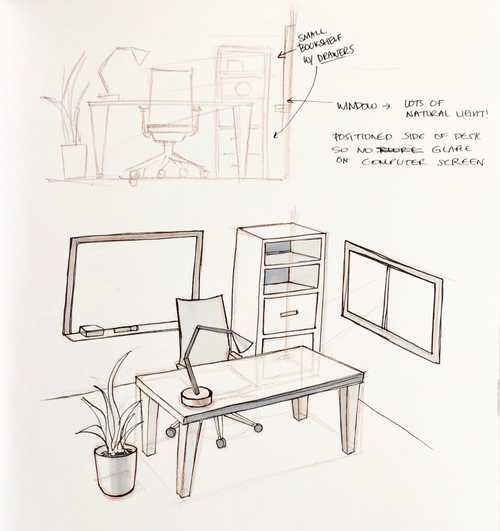 SMALL
BOOKSHELF
W/ DRAWERS
WINDOW → LOTS OF
NATURAL LIGHT!
POSITIONED SIDE OF DESK
SO NO GLARE
ON COMPUTER SCREEN